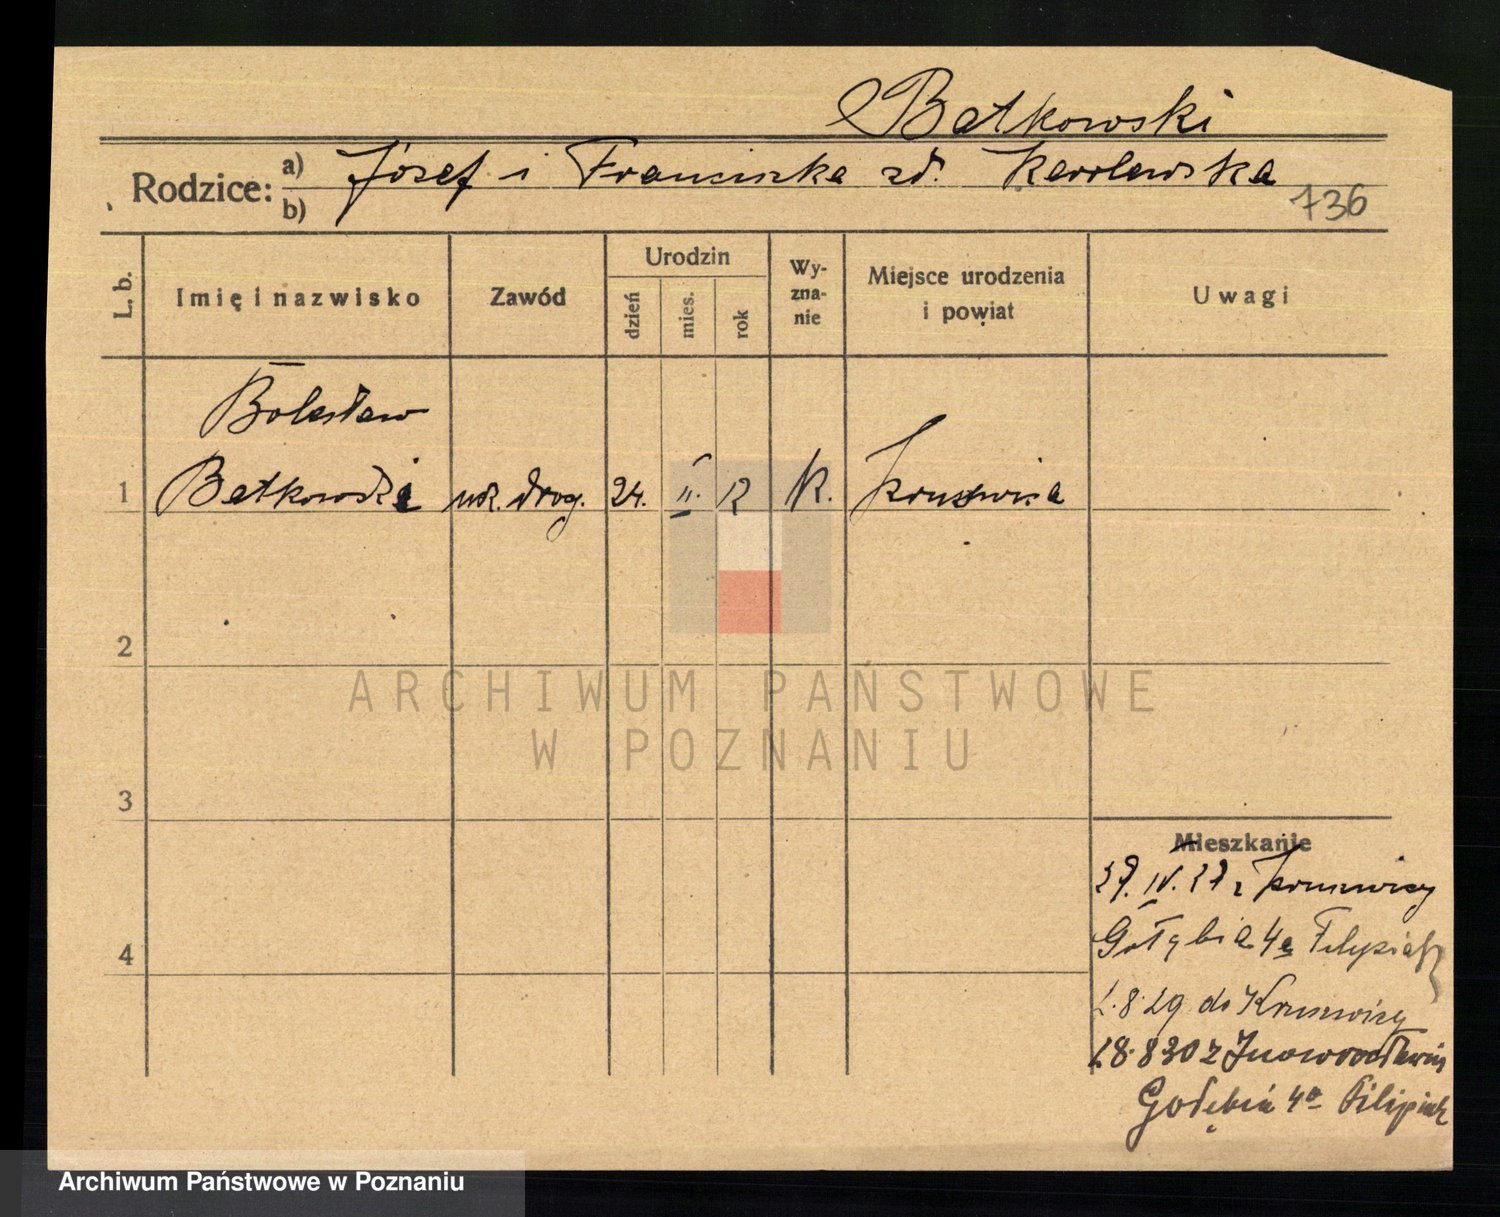 Batkowski
Rodzice: a) Józef i Franciszka zd. Karolewska
b)
736
L. b.
Imię i nazwisko
Zawód
Urodzin
dzień
mies.
rok
Wy-
zna-
nie
Miejsce urodzenia
i powiat
Uwagi
Bolesław
1 Batkowski ucz. drog. 24. II. 12 K. Kruszwica
2
3
4
Mieszkanie
IV. z Kruszwicy
Gołębia 4a Filipiak
2.8.29 do Kruszwicy
18.8 30 z Inowrocławia
Gołębia 4a Filipiak
ARCHIWUM PAŃSTWOWE
W POZNANIU
Archiwum Państwowe w Poznaniu